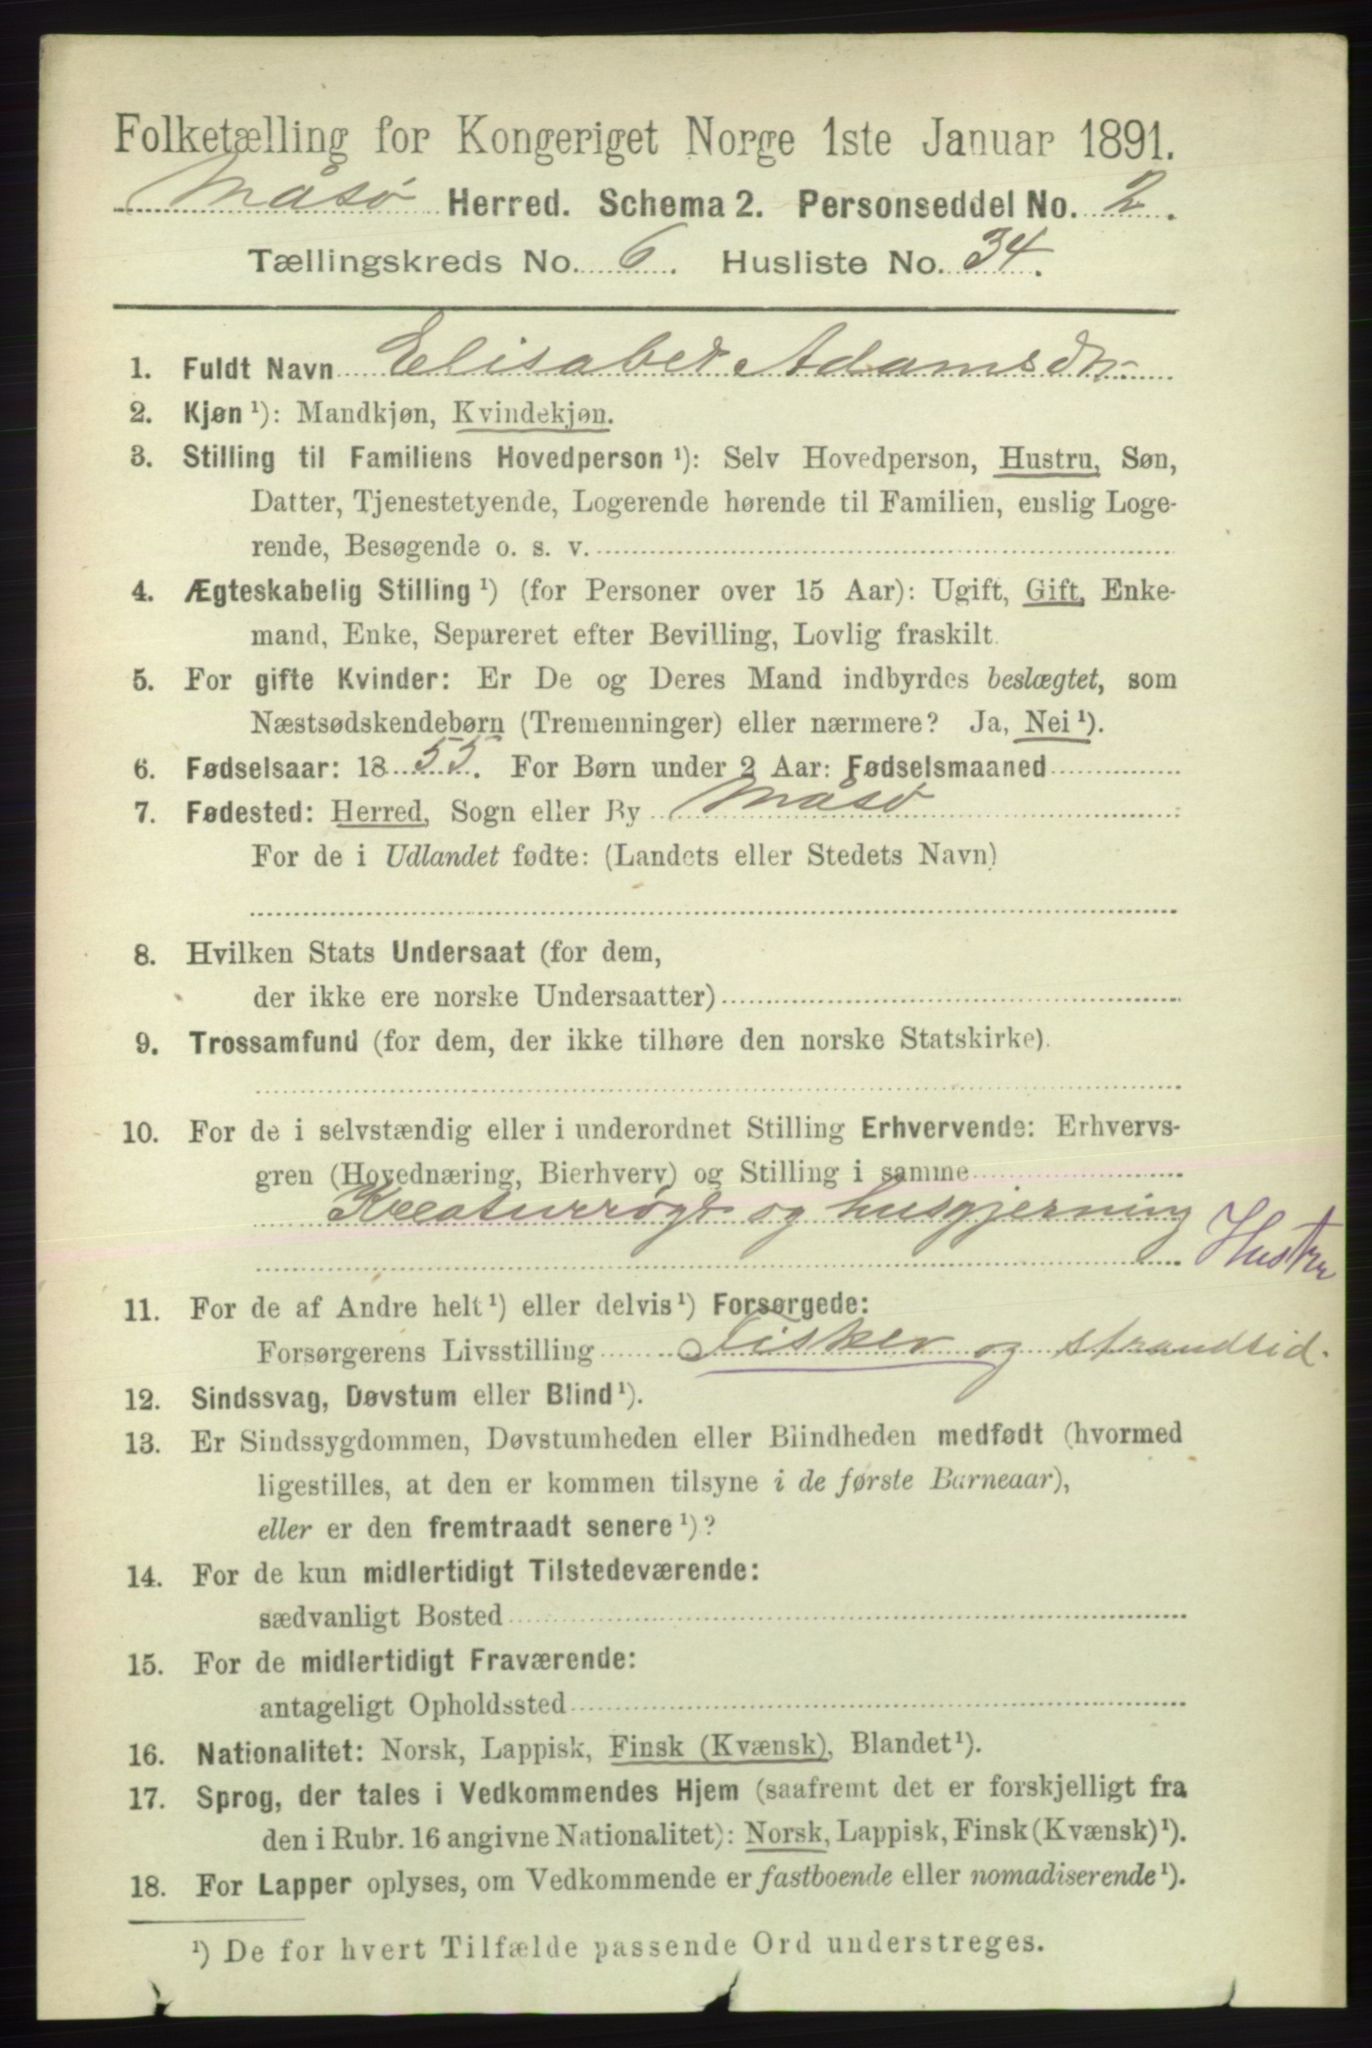 Folketælling for Kongeriget Norge 1ste Januar 1891.
Måsø Herred. Schema 2. Personseddel No. 2.
Tællingskreds No. 6. Husliste No. 34.
1. Fuldt Navn Elisabet Adamsdtr.
2. Kjøn ¹): Mandkjøn, Kvindekjøn.
3. Stilling til Familiens Hovedperson ¹): Selv Hovedperson, Hustru, Søn,
Datter, Tjenestetyende, Logerende hørende til Familien, enslig Loge-
rende, Besøgende o. s. v.
4. Ægteskabelig Stilling ¹) (for Personer over 15 Aar): Ugift, Gift, Enke-
mand, Enke, Separeret efter Bevilling, Lovlig fraskilt.
5. For gifte Kvinder: Er De og Deres Mand indbyrdes beslægtet, som
Næstsødskendebørn (Tremenninger) eller nærmere? Ja, Nei ¹).
6. Fødselsaar: 1855. For Børn under 2 Aar: Fødselsmaaned
7. Fødested: Herred, Sogn eller By Måsø
For de i Udlandet fødte: (Landets eller Stedets Navn)
8. Hvilken Stats Undersaat (for dem,
der ikke ere norske Undersaatter)
9. Trossamfund (for dem, der ikke tilhøre den norske Statskirke).
10. For de i selvstændig eller i underordnet Stilling Erhvervende: Erhvervs-
gren (Hovednæring, Bierhverv) og Stilling i samme
Kreaturrøgt og husgjerning
Hustru
11. For de af Andre helt ¹) eller delvis ¹) Forsørgede:
Forsørgerens Livsstilling Fisker og strandsid.
12. Sindssvag, Døvstum eller Blind ¹).
13. Er Sindssygdommen, Døvstumheden eller Blindheden medfødt (hvormed
ligestilles, at den er kommen tilsyne i de første Barneaar),
eller er den fremtraadt senere ¹)?
14. For de kun midlertidigt Tilstedeværende:
sædvanligt Bosted
15. For de midlertidigt Fraværende:
antageligt Opholdssted
16. Nationalitet: Norsk, Lappisk, Finsk (Kvænsk), Blandet ¹).
17. Sprog, der tales i Vedkommendes Hjem (saafremt det er forskjelligt fra
den i Rubr. 16 angivne Nationalitet): Norsk, Lappisk, Finsk (Kvænsk) ¹).
18. For Lapper oplyses, om Vedkommende er fastboende eller nomadiserende ¹).
¹) De for hvert Tilfælde passende Ord understreges.